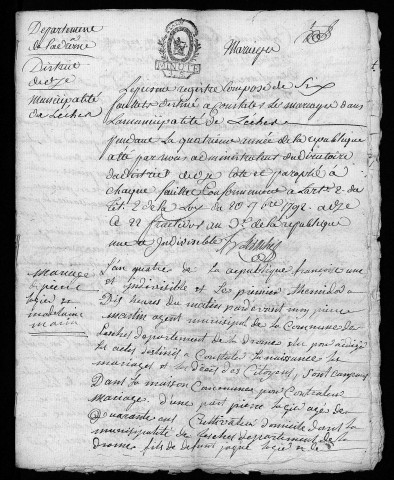 Departement
de la drôme
District
de Die
Municipalité
de Lesches
Mariages
Le present registre Composé de Six
feuillets destiné a constater les mariages dans
La municipalité de Lesches
pendant la quatrieme année de la republique
a été par nous administrateur du directoire
du district de die coté et paraphé a
chaque feuillet Conformement a l'art. 2 du
tit. 2 de la Loy du 20 7bre 1792. a die
le 22 fructidor an 3e de la republique
une et Indivisible
mariage
de pierre
logier et
magdelaine
maria
L'an quatre de la republique francoise une
et indivisible et le premier thermidor a
Dix heures du matin pardevant moy pierre
martin agent municipal de la Commune de
Lesches departement de la drome elu pour dresser
les actes destinés a Constater la naissance les
mariages et les décés des Citoyens, sont comparus
Dans la maison Commune pour Contracter
mariage d'une part pierre logier age de
Quarante ans Cultivateur domicilié dans la
municipalité de Lesches departement de la
drome fils de defunt jaque logier et de